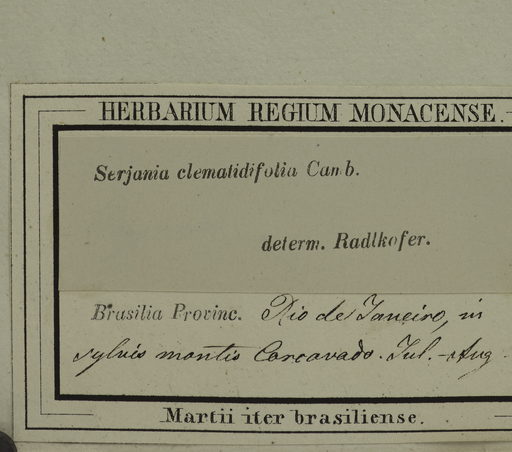 HERBARIUM REGIUM MONACENSE.
Serjania clematidifolia Camb.
determ. Radlkofer.
Brasilia Provinc. Rio de Janeiro, in
sylvis montis Corcovado. Jul. - Aug.
Martii iter brasiliense.